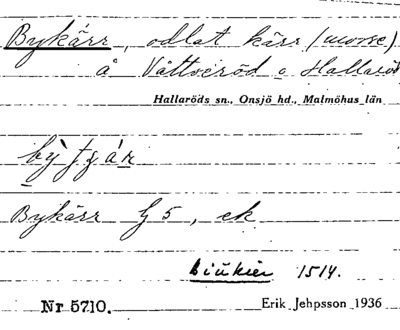 Bykärr, odlat kärr (mosse)
å Våttseröd o Hallaröd
Hallaröds sn., Onsjö hd., Malmöhus län
Bykärr G 5, ek
1514.
Nr 5710. Erik Jehpsson 1936